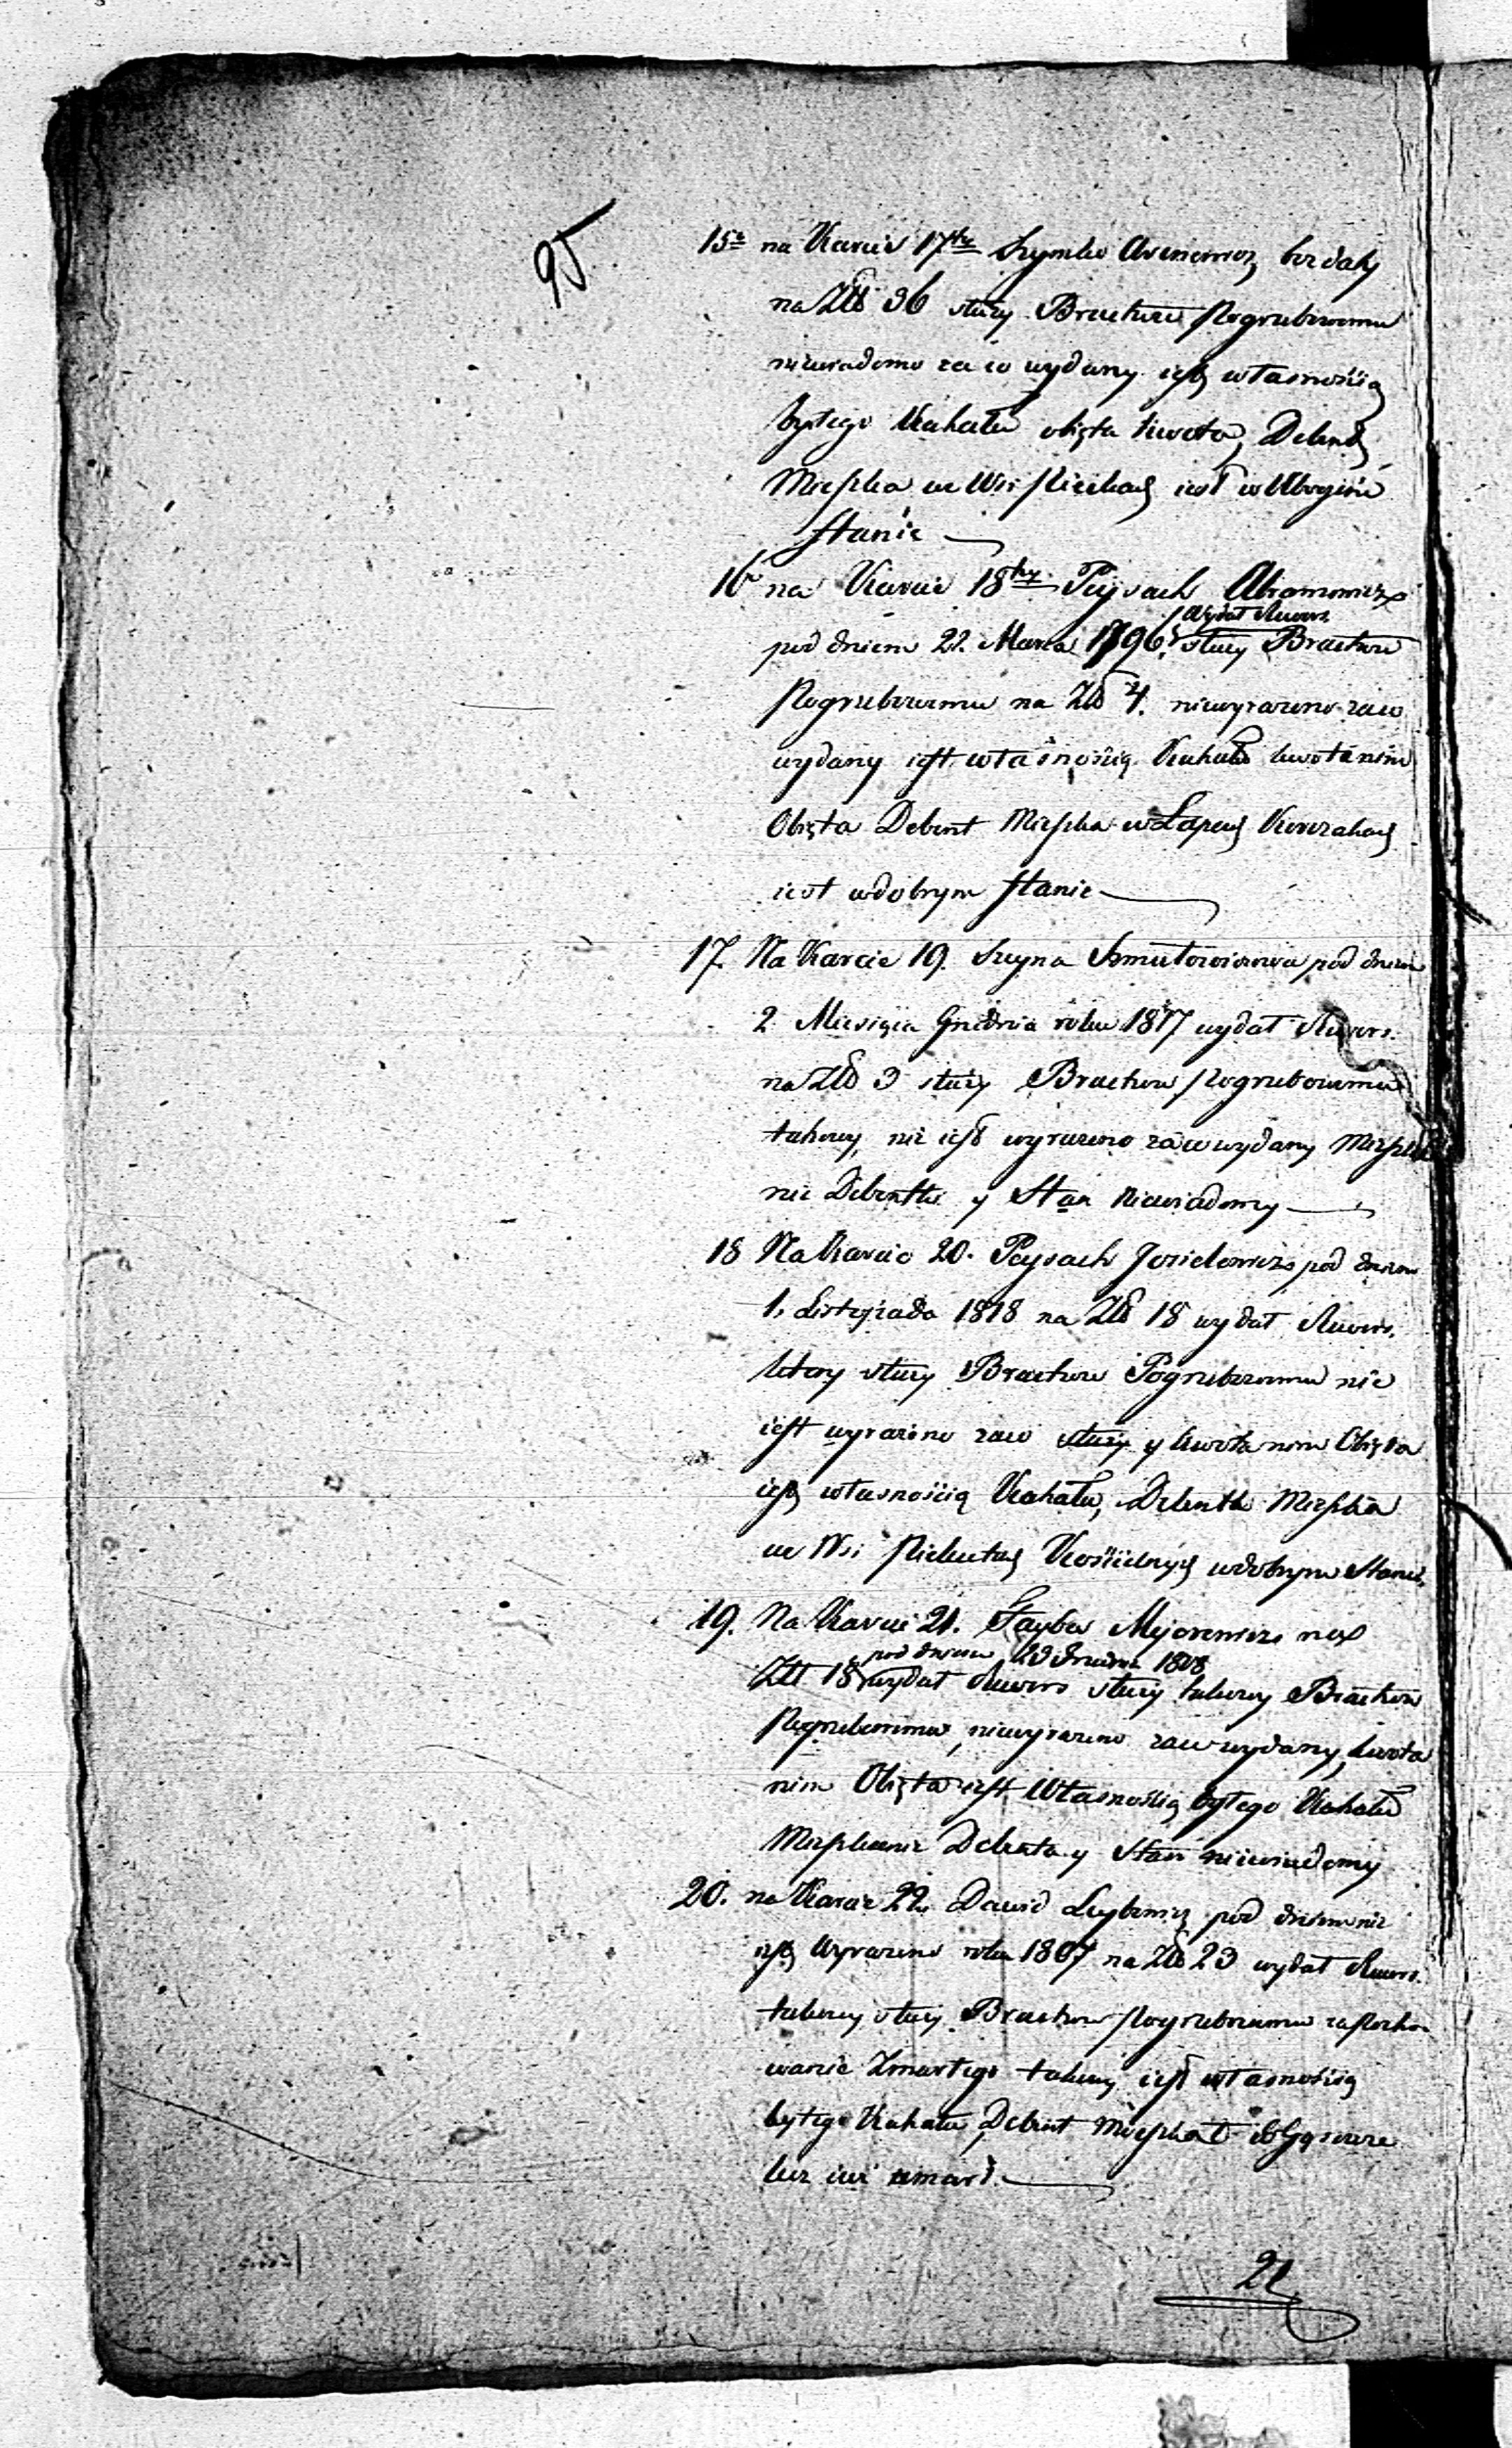 95
15e na Karcie 17tey Szymko Aronowicz bez daty
na Złt 36 służy Bractwu Pogrzebowemu
niewiadomo za co wydany jest własnością
byłego Kahału objęta kwota, Debent
Mieszka we Wsi Piekutach jest w Ubogim
stanie
16o na Karcie 18tey Peysach Abramowicz
wydał Rewers
pod dniem 22. Marca 1796. służy Bractwu
Pogrzebowemu na Złt 4. niewyrażono za co
wydany jest własnością Kahału kwota nim
Objęta Debent Mieszka w Łapach
jest w dobrym stanie
17. Na Karcie 19. Szmulowiczowa pod dniem
2 Miesiąca Grudnia roku 1817 wydał Rewers
na Złt 3 służy Bractwu Pogrzebowemu
takowy, nie jest wyrażono za co wydany Mieszka
nie Debentki y Stan niewiadomy
18 Na Karcie 20. Peysach Josielowicz pod dniem
1. Listopada 1818 na Złt 18 wydał Rewers.
który służy Bractwu Pogrzebowemu nie
jest wyrażono za co służy y kwota nim Objęta
jest własnością Kahału, Debent Mieszka
we Wsi Piekutach Kościelnych w dobrym Stanie
19. Na Karcie 21. Fayba Mejerowicz na
pod dniem Grudnia 1808
Złt 18 wydał Rewers służy takowy Bractwu
Pogrzebowemu, niewyrażono za co wydany, kwota
nim Objęta jest Własnością byłego Kahału
Mieszkanie Debenta y Stan niewiadomy
20. na Karcie 22. Dawid Leybowicz pod dniem nie
jest Wyrażono roku 1807 na Złt 23 wydał Rewers.
takowy służy Bractwu Pogrzebowemu za pocho
wanie Zmarłego takowy jest własnością
byłego Kahału, Debent Mieszkał w
lecz już umarł.
21